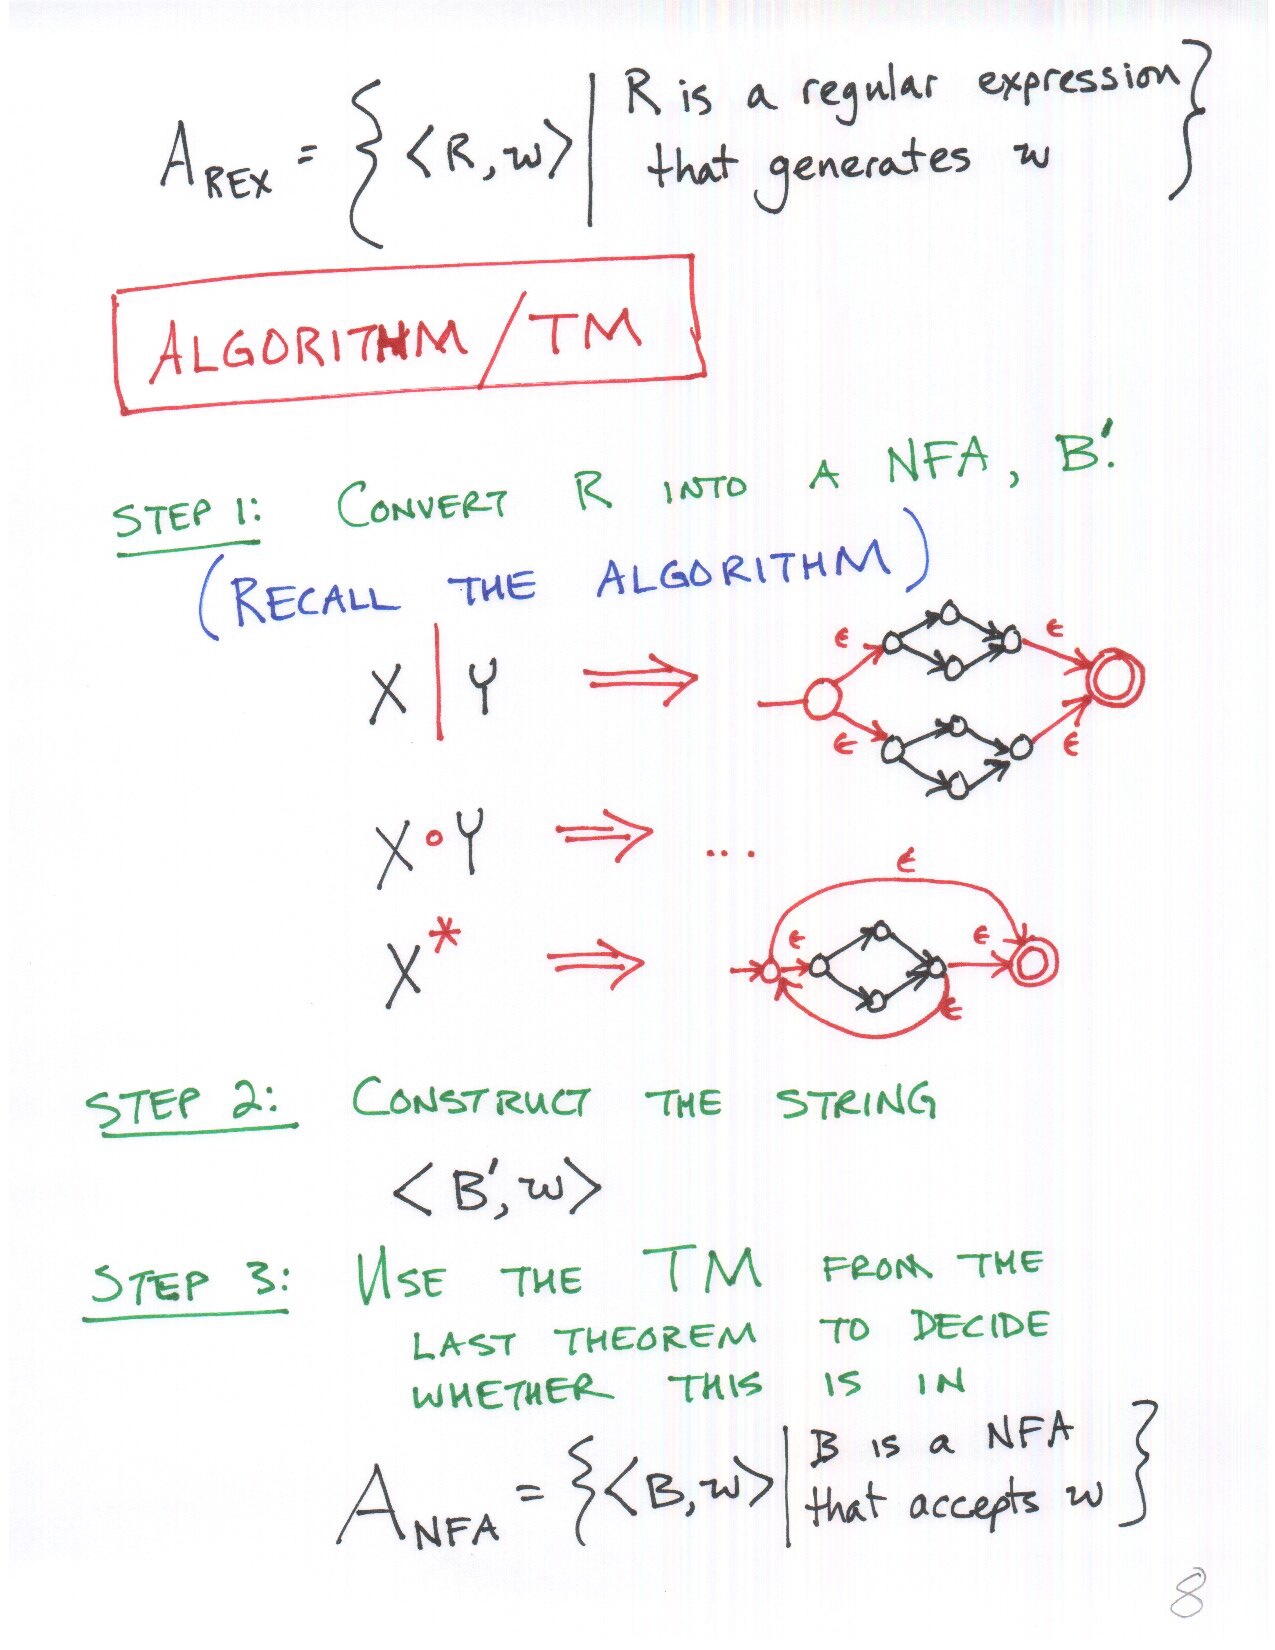 A_REX = { <R, w> | R is a regular expression
that generates w }
ALGORITHM / TM
STEP 1: CONVERT R INTO A NFA, B'.
(RECALL THE ALGORITHM)
X | Y ⇒ ε ε ε ε
X ∘ Y ⇒ ...
X* ⇒ ε ε ε ε
STEP 2: CONSTRUCT THE STRING
<B', w>
STEP 3: USE THE TM FROM THE
LAST THEOREM TO DECIDE
WHETHER THIS IS IN
A_NFA = { <B, w> | B is a NFA
that accepts w }
8